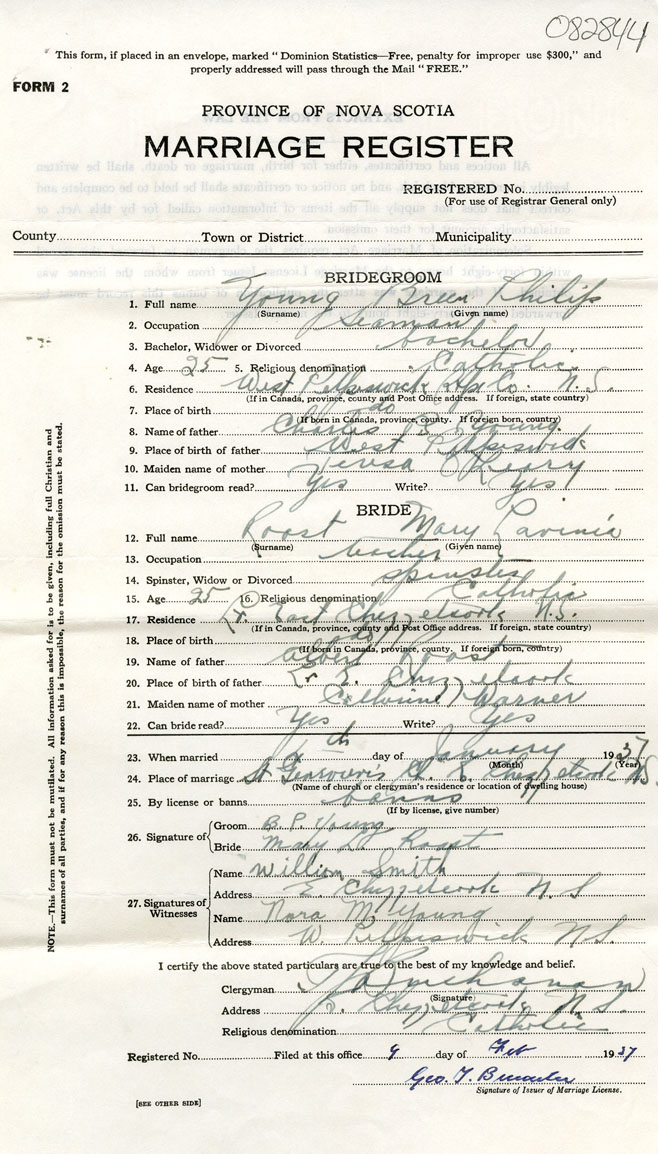 082844
This form, if placed in an envelope, marked "Dominion Statistics—Free, penalty for improper use $300," and
properly addressed will pass through the Mail "FREE."
FORM 2
PROVINCE OF NOVA SCOTIA
MARRIAGE REGISTER
REGISTERED No.
(For use of Registrar General only)
County Town or District Municipality
BRIDEGROOM
1. Full name Young Breen Philip
(Surname) (Given name)
2. Occupation Seaman
3. Bachelor, Widower or Divorced bachelor
4. Age 25 5. Religious denomination Catholic
6. Residence West Petpiswick Hfx Co. N.S.
(If in Canada, province, county and Post Office address. If foreign, state country)
7. Place of birth do
(If born in Canada, province, county. If foreign born, country)
8. Name of father Charles B. Young
9. Place of birth of father West Petpiswick
10. Maiden name of mother Teresa O'Leary
11. Can bridegroom read? Yes Write? Yes
BRIDE
12. Full name Roast Mary Lavinia
(Surname) (Given name)
13. Occupation teacher
14. Spinster, Widow or Divorced spinster
15. Age 25 16. Religious denomination Catholic
17. Residence East Chezzetcook N.S.
(If in Canada, province, county and Post Office address. If foreign, state country)
18. Place of birth do
(If born in Canada, province, county. If foreign born, country)
19. Name of father Albert Roast
20. Place of birth of father E. Chezzetcook
21. Maiden name of mother Catherine Warner
22. Can bride read? Yes Write? Yes
23. When married th day of January 1937
(Month) (Year)
24. Place of marriage St E. Chezzetcook N.S.
(Name of church or clergyman's residence or location of dwelling house)
25. By license or banns banns
(If by license, give number)
26. Signature of
Groom B.P. Young
Bride Mary L. Roast
27. Signatures of Witnesses
Name William Smith
Address E. Chezzetcook N S
Name Nora M. Young
Address W. Petpiswick N.S.
I certify the above stated particulars are true to the best of my knowledge and belief.
Clergyman
(Signature)
Address Chezzetcook, N.S.
Religious denomination Catholic
Registered No. Filed at this office 9 day of Feb 1937
Geo. T.
Signature of Issuer of Marriage License.
[SEE OTHER SIDE]
NOTE.—This form must not be mutilated. All information asked for is to be given, including full Christian and
surnames of all parties, and if for any reason this is impossible, the reason for the omission must be stated.